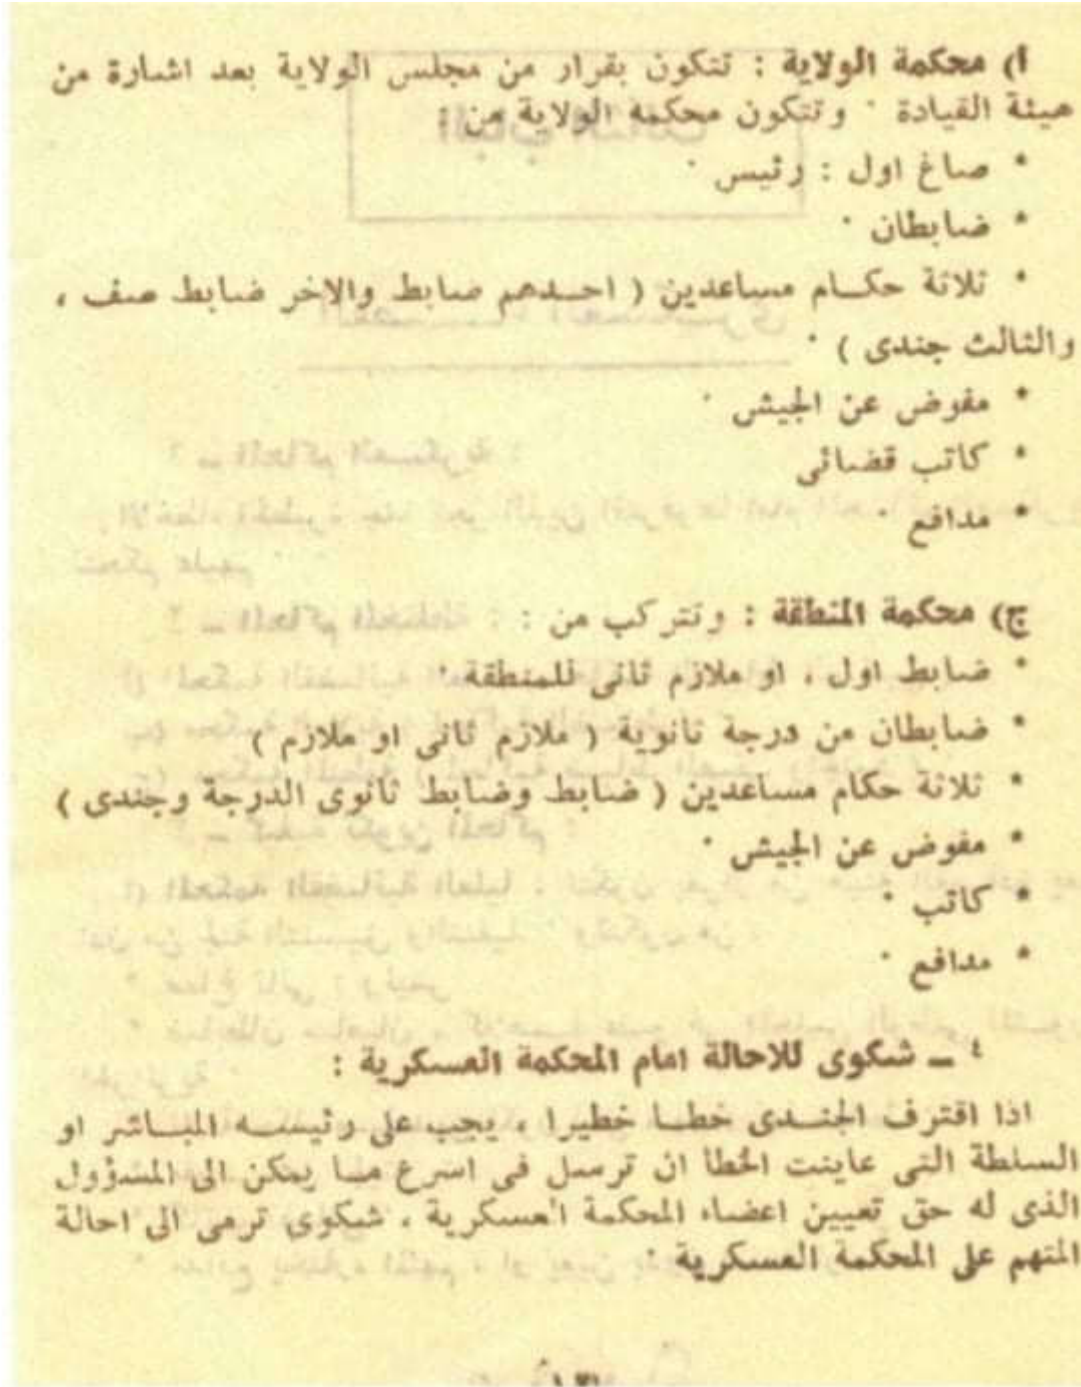 أ) محكمة الولاية : تتكون بقرار من مجلس الولاية بعد اشارة من
هيئة القيادة · وتتكون محكمه الولاية من :
* صاغ اول : رئيس ·
* ضابطان ·
* ثلاثة حكام مساعدين ( احدهم ضابط والاخر ضابط صف ،
والثالث جندى ) ·
* مفوض عن الجيش ·
* كاتب قضائى
* مدافع ·
ج) محكمة المنطقة : وتتركب من :
* ضابط اول ، او ملازم ثانى للمنطقة ·
* ضابطان من درجة ثانوية ( ملازم ثانى او ملازم )
* ثلاثة حكام مساعدين ( ضابط وضابط ثانوى الدرجة وجندى )
* مفوض عن الجيش ·
* كاتب ·
* مدافع ·
٤ ــ شكوى للاحالة امام المحكمة العسكرية :
اذا اقترف الجندى خطا خطيرا ، يجب على رئيسه المباشر او
السلطة التى عاينت الخطأ ان ترسل فى اسرع ما يمكن الى المسؤول
الذى له حق تعيين اعضاء المحكمة العسكرية ، شكوى ترمى الى احالة
المتهم على المحكمة العسكرية ·